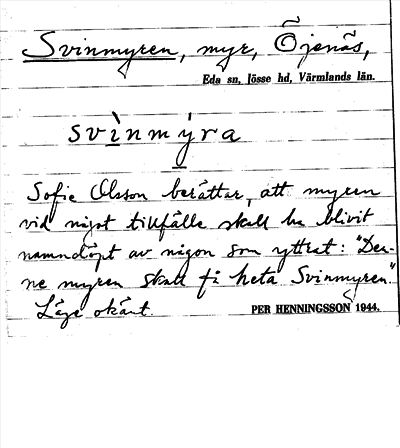 Svinmyren, myr, Öjenäs,
Eda sn, Jösse hd, Värmlands län.
svìnmýra
Sofie Olsson berättar, att myren
vid något tillfälle skall ha blivit
namndöpt av någon som yttrat: "Den-
ne myren skall få heta Svinmyren."
Läge okänt.
PER HENNINGSSON 1944.